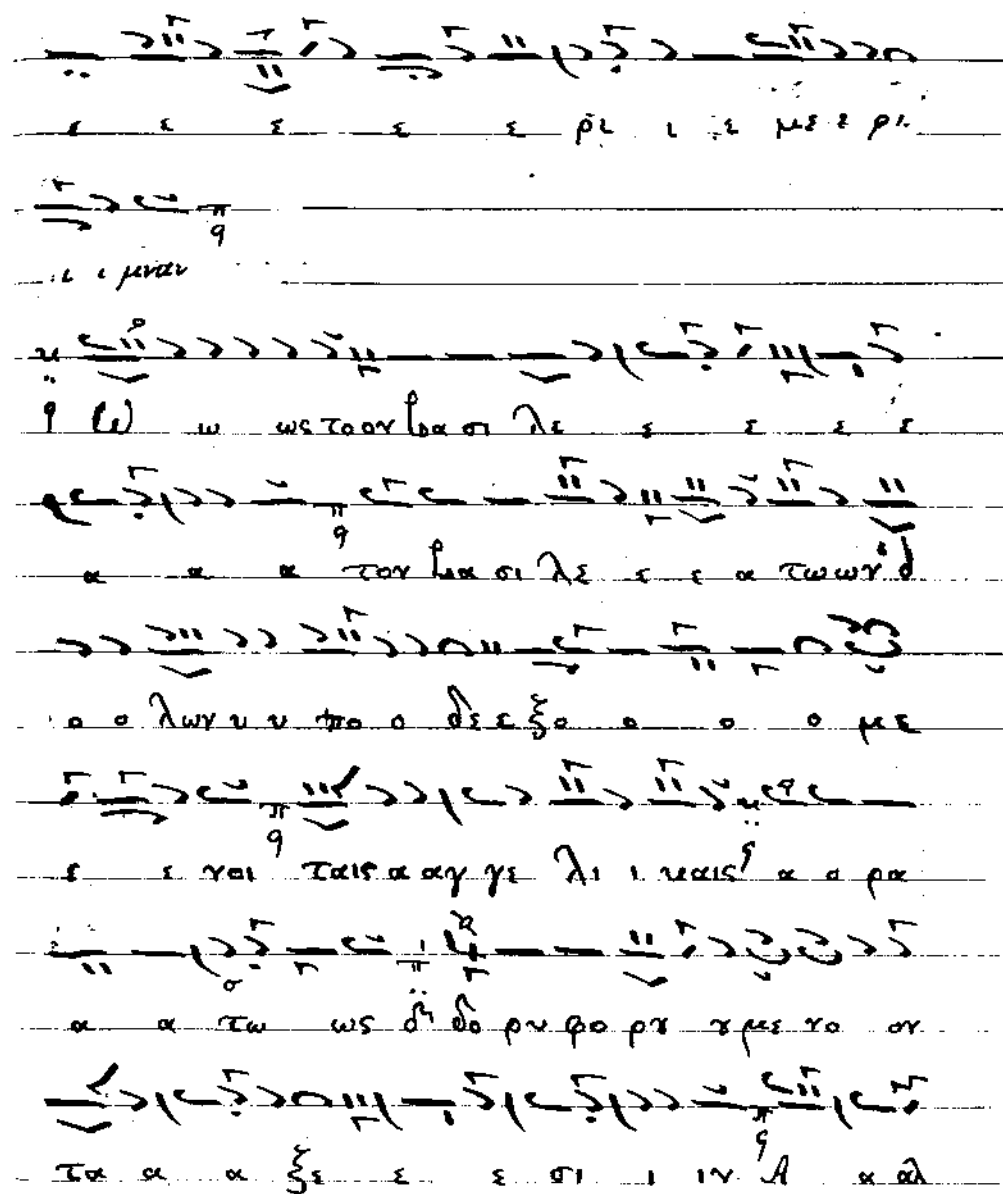 ε ε ε ε ε ρι ι ε με ε ρι
ι ι μναν
ω ω ως το ον βα σι λε ε ε ε ε
α α α τον βα σι λε ε ε α τω ων
ο ο λων υ υ πο ο δε ε ξο ο ο ο με
ε ε νοι ταις α αγ γε λι ι καις α ο ρα
α α τω ως δο ρυ φο ρȣ ȣ με νο ον
τα α α ξε ε ε σι ι ιν Α α αλ